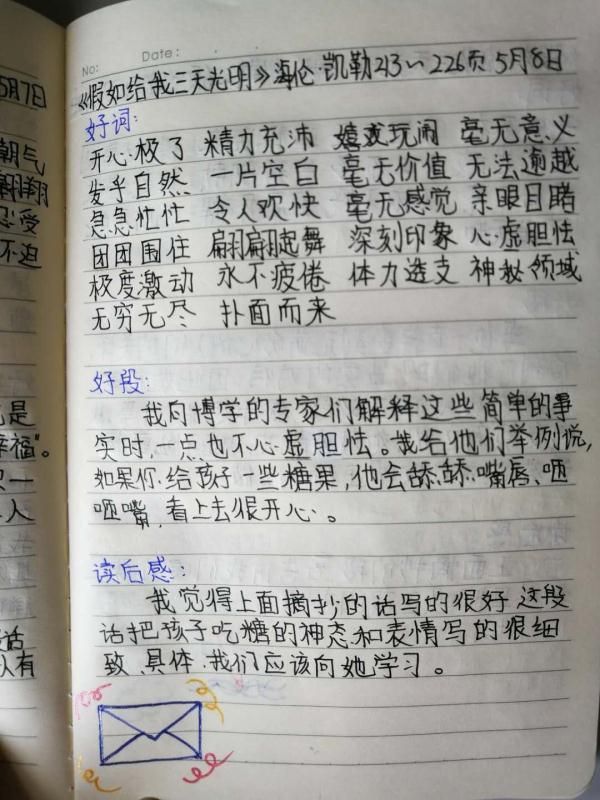 5月7日
朝气
翩翔
忍受
不迫
是
幸福”。
一
人
话
以有
No:
Date:
《假如给我三天光明》海伦·凯勒213~226页 5月8日
好词:
开心极了 精力充沛 嬉戏玩闹 毫无意义
发乎自然 一片空白 毫无价值 无法逾越
急急忙忙 令人欢快 毫无感觉 亲眼目睹
团团围住 翩翩起舞 深刻印象 心虚胆怯
极度激动 永不疲倦 体力透支 神秘领域
无穷无尽 扑面而来
好段:
我向博学的专家们解释这些简单的事
实时,一点也不心虚胆怯。我给他们举例说,
如果你给孩子一些糖果,他会舔舔嘴唇、咂
咂嘴,看上去很开心。
读后感:
我觉得上面摘抄的话写的很好,这段
话把孩子吃糖的神态和表情写的很细
致、具体,我们应该向她学习。